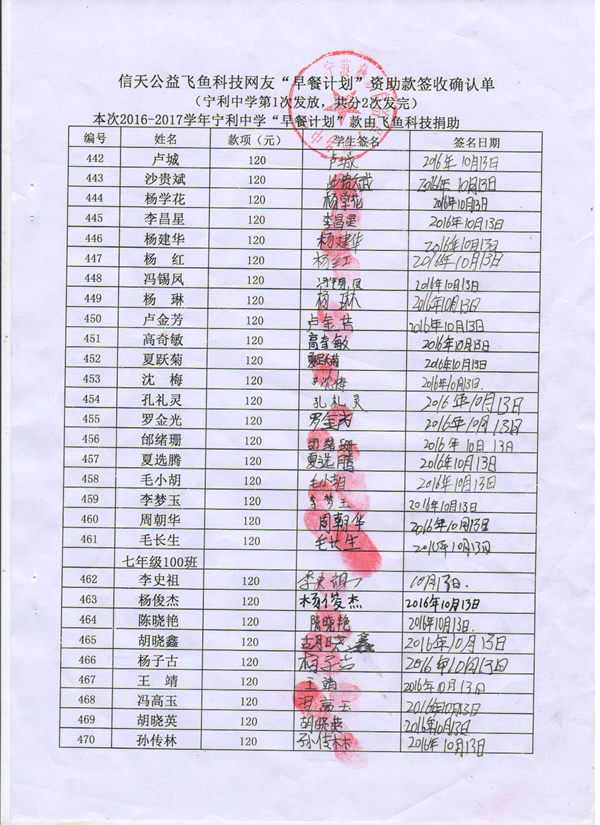 信天公益飞鱼科技网友“早餐计划”资助款签收确认单
（宁利中学第1次发放，共分2次发完）
本次2016-2017学年宁利中学“早餐计划”款由飞鱼科技捐助
编号 姓名 款项（元） 学生签名 签名日期
442 卢城 120 卢城 2016年10月13日
443 沙贵斌 120 沙贵斌 2016年10月13日
444 杨学花 120 杨学花 2016年10月13日
445 李昌星 120 李昌星 2016年10月13日
446 杨建华 120 杨建华 2016年10月13日
447 杨 红 120 杨红 2016年10月13日
448 冯锡凤 120 2016年10月13日
449 杨 琳 120 杨琳 2016年10月13日
450 卢金芳 120 卢金芳 2016年10月13日
451 高奇敏 120 高奇敏 2016年10月13日
452 夏跃菊 120 夏跃菊 2016年10月13日
453 沈 梅 120 沈梅 2016年10月13日.
454 孔礼灵 120 孔礼灵 2016年10月13日
455 罗金光 120 罗金光 2016年10月13日
456 邰绪珊 120 邰绪珊 2016年10日13日
457 夏选腾 120 夏选腾 2016年10月13日
458 毛小胡 120 毛小胡 2016年10月13日
459 李梦玉 120 李梦玉 2016年10月13日
460 周朝华 120 周朝华 2016年10月13日
461 毛长生 120 毛长生 2016年10月13日
七年级100班
462 李史祖 120 10月13日.
463 杨俊杰 120 杨俊杰 2016年10月13日
464 陈晓艳 120 陈晓艳 2016年10月13日.
465 胡晓鑫 120 胡晓鑫 2016年10月13日
466 杨子古 120 杨子古 2016年10月13日
467 王 靖 120 王靖 2016年10月13日
468 冯高玉 120 冯高玉 2016年10月13日
469 胡晓英 120 胡晓英 2016年10月13日
470 孙传林 120 孙传林 2016年10月13日